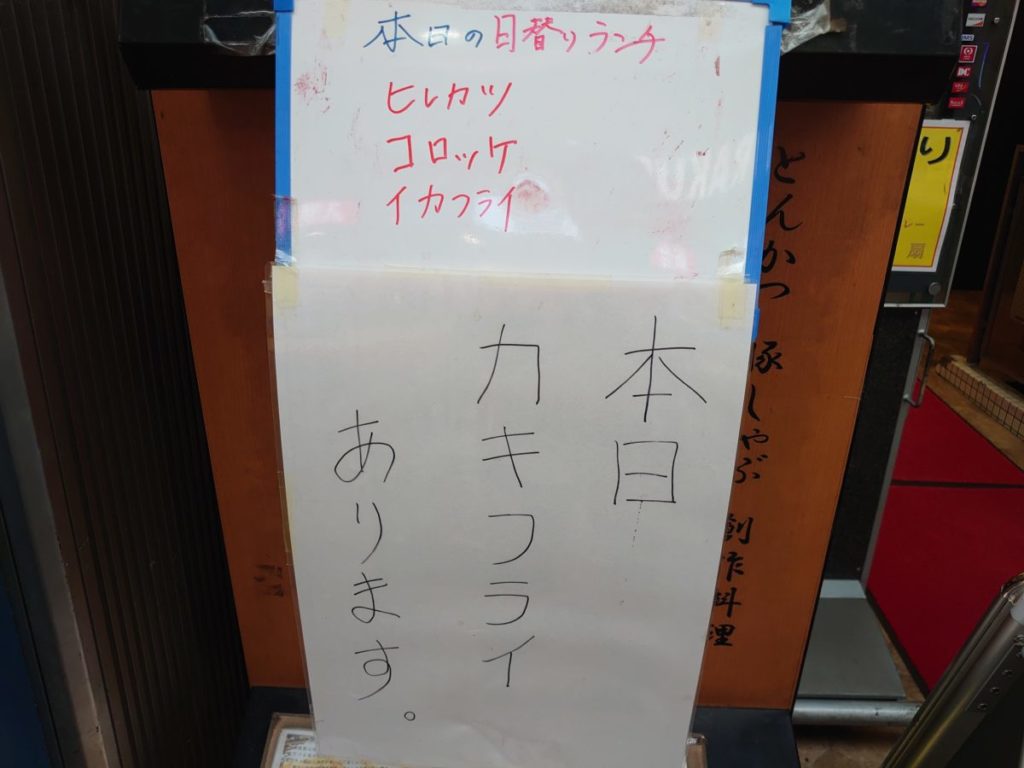 本日の日替りランチ
ヒレカツ
コロッケ
イカフライ
本日
カキフライ
あります。
とんかつ 豚しゃぶ 創作料理
り
DC